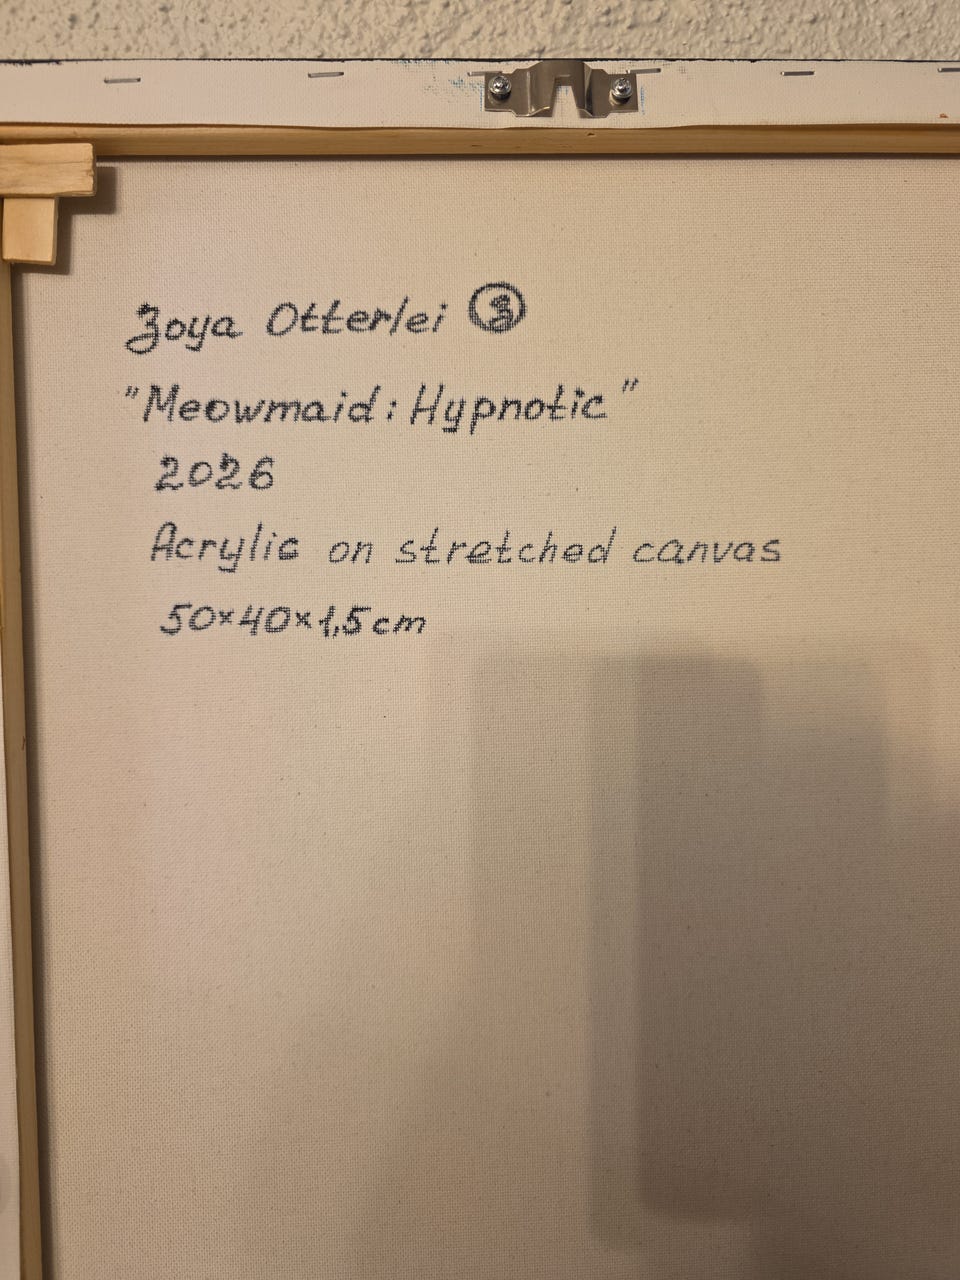 Zoya Otterlei
"Meowmaid: Hypnotic"
2026
Acrylic on stretched canvas
50×40×1,5cm